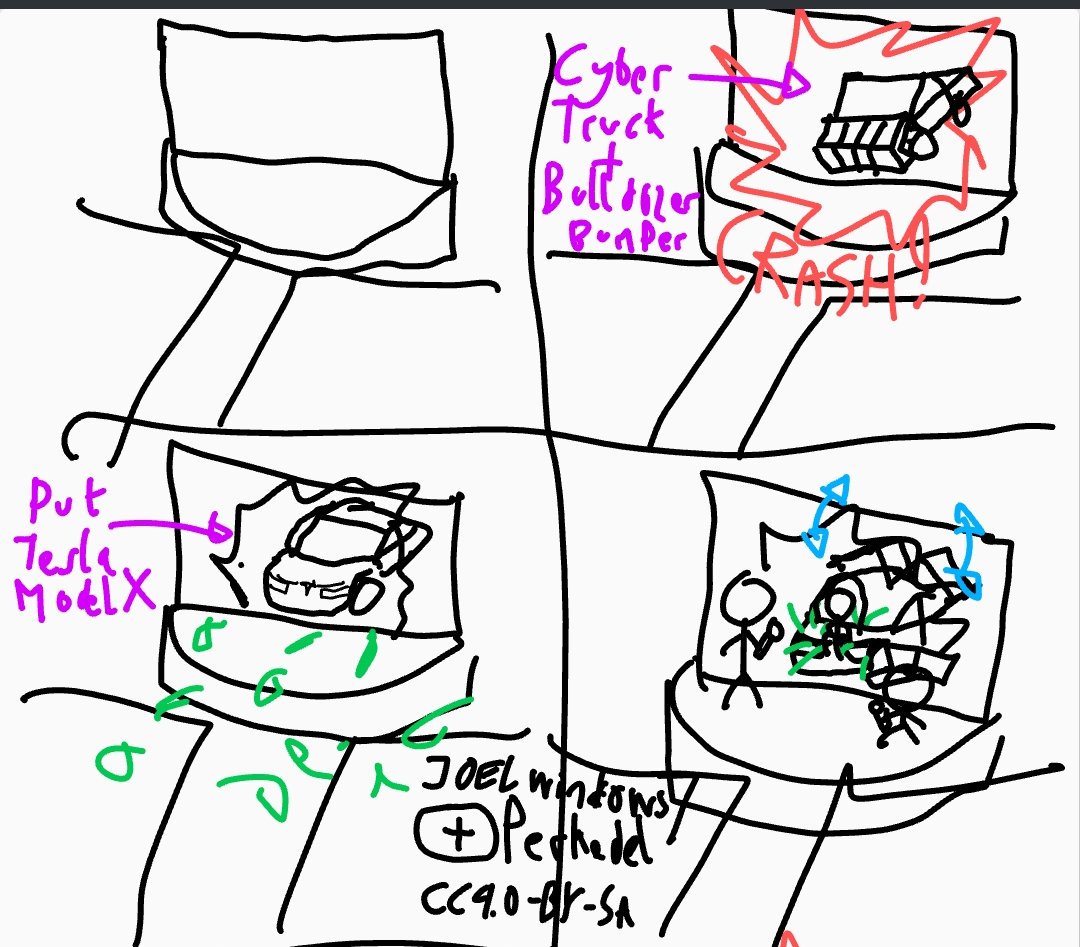 Cyber
Truck
+
Bulldozer
Bumper
CRASH!
Put
Tesla
Model X
JOELwindows
+ Perkedel
CC4.0-BY-SA